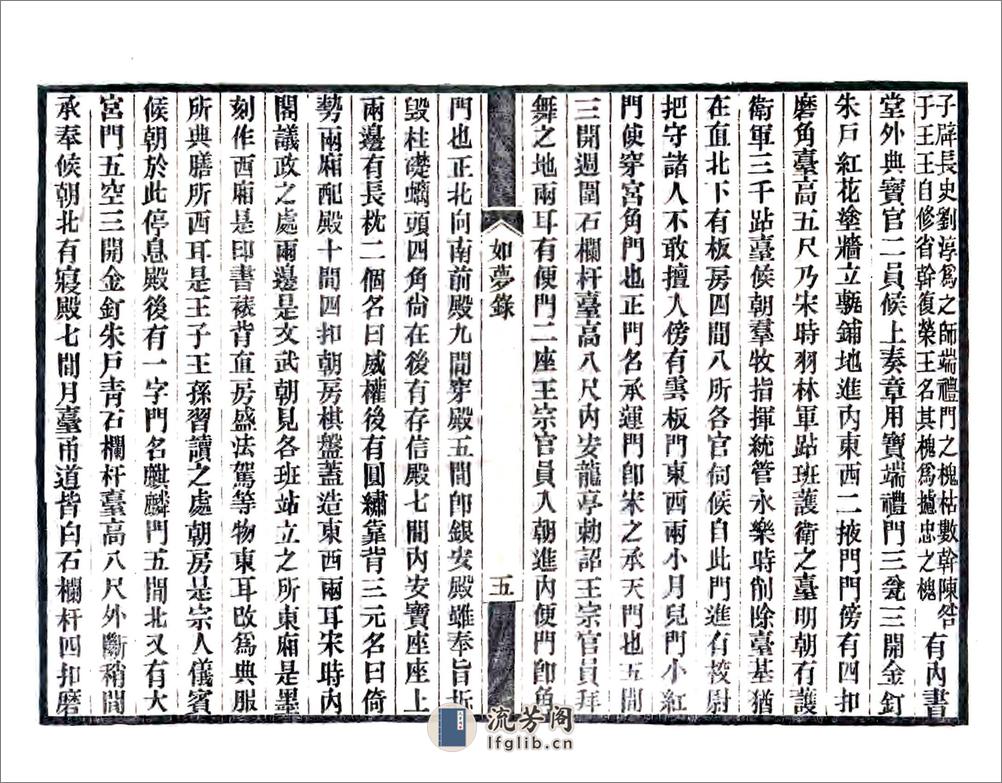 子辟長史劉淳爲之師端禮門之槐枯數幹陳咎
于王王自修省幹復榮王名其槐爲攄忠之槐
有內書
堂外典寶官二員候上奏章用寶端禮門三瓮三開金釘
朱戶紅花塗牆立甎鋪地進內東西二掖門門傍有四扣
磨角臺高五尺乃宋時羽林軍跕班護衛之臺明朝有護
衛軍三千跕臺候朝羣牧指揮統管永樂時削除臺基猶
在直北下有板房四間八所各官伺候自此門進有校尉
把守諸人不敢擅入傍有雲板門東西兩小月兒門小紅
門使穿宮角門也正門名承運門卽宋之承天門也五間
三開週圍石欄杆臺高八尺內安龍亭勅詔王宗官員拜
舞之地兩耳有便門二座王宗官員入朝進內便門卽角
如夢錄
五
門也正北向南前殿九間穿殿五間卽銀安殿雖奉旨拆
毀柱礎螭頭四角尙在後有存信殿七間內安寶座座上
兩邊有長枕二個名曰威權後有圓繡靠背三元名曰倚
勢兩廂配殿十間四扣朝房棋盤蓋造東西兩耳宋時內
閣議政之處兩邊是文武朝見各班站立之所東廂是墨
刻作西廂是印書裱背直房盛法駕等物東耳改爲典服
所典膳所西耳是王子王孫習讀之處朝房是宗人儀賓
候朝於此停息殿後有一字門名麒麟門五間北又有大
宮門五空三開金釘朱戶靑石欄杆臺高八尺外斷稍間
承奉候朝北有寢殿七間月臺甬道皆白石欄杆四扣磨
流芳阁
lfglib.cn